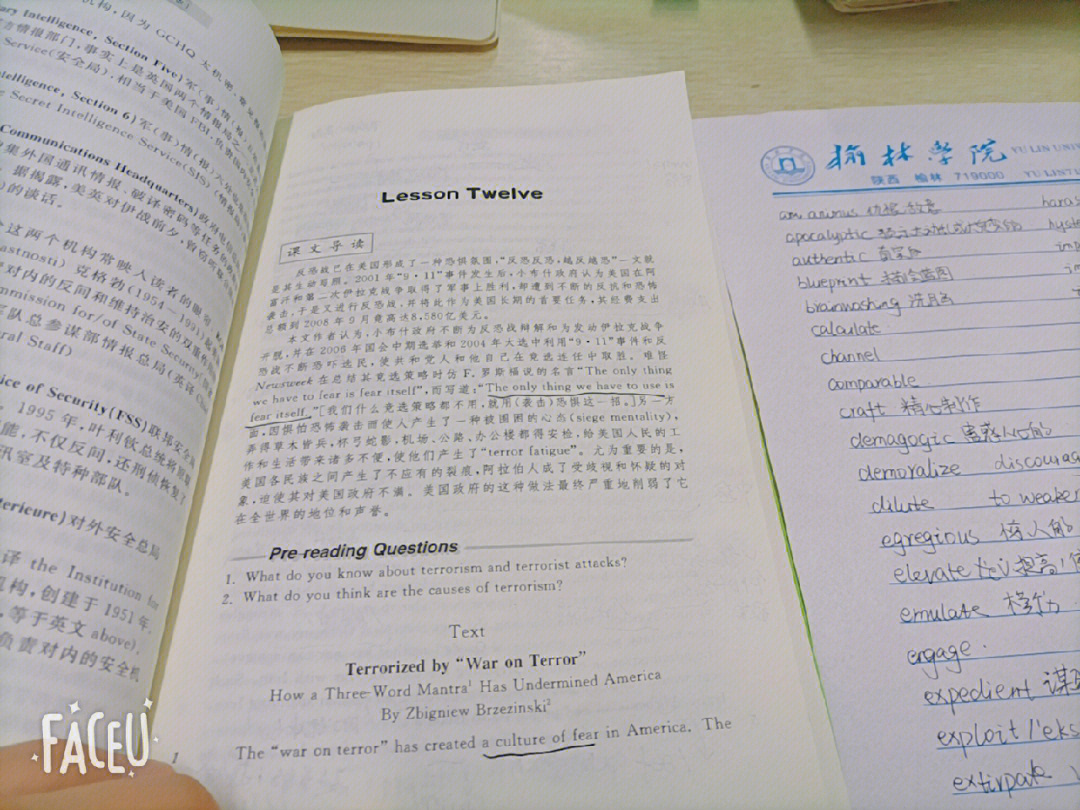 机构,因为 GCHQ 太机密,
Intelligence, Section Five)军(事)情(报)
情报部门,事实上是英国两个情报局之一
Service(安全局),相当于美国 FBI,负责国内
Intelligence, Section 6)军(事)情(报)六
Secret Intelligence Service(SIS)
Communications Headquarters)
集外国通讯情报、破译密码等任务
据揭露,美英对伊战前夕,曾
的谈话。
这两个机构常映入读者的眼
克格勃(1954—1991)
对内的反间和维持治安的双重
Commission for/of State Security
队总参谋部情报总局(英译
ral Staff)
ice of Security(FSS)联邦安全局
1995 年,叶利钦总统将
能,不仅反间,还刑侦
讯室及特种部队。
对外安全总局
译 the Institution for
机构,创建于1951年,
等于英文 above),
负责对内的安全机
Lesson Twelve
课文导读
反恐战已在美国形成了一种恐惧氛围,“反恐反恐,越反越恐”一文就
是其生动写照。2001年“9·11”事件发生后,小布什政府认为美国在阿
富汗和第一次伊拉克战争取得了军事上胜利,却遭到不断的反抗和恐怖
袭击,于是又进行反恐战,并将此作为美国长期的首要任务,其经费支出
总额到2008年9月竟高达8,580亿美元。
本文作者认为,小布什政府不断为反恐战辩解和为发动伊拉克战争
开脱,并在2006年国会中期选举和2004年大选中利用“9·11”事件和反
恐战不断恐吓选民,使共和党人和他自己在竞选连任中取胜。难怪
Newsweek在总结其竞选策略时仿F.罗斯福说的名言“The only thing
we have to fear is fear itself”,而写道:“The only thing we have to use is
fear itself.”[我们什么竞选策略都不用,就用(袭击)恐惧这一招。]另一方
面,因惧怕恐怖袭击而使人产生了一种被围困的心态(siege mentality),
弄得草木皆兵,杯弓蛇影,机场、公路、办公楼都得安检,给美国人民的工
作和生活带来诸多不便,使他们产生了“terror fatigue”。尤为重要的是,
美国各民族之间产生了不应有的裂痕,阿拉伯人成了受歧视和怀疑的对
象,迫使其对美国政府不满。美国政府的这种做法最终严重地削弱了它
在全世界的地位和声誉。
Pre-reading Questions
1. What do you know about terrorism and terrorist attacks?
2. What do you think are the causes of terrorism?
Text
Terrorized by “War on Terror”
How a Three-Word Mantra¹ Has Undermined America
By Zbigniew Brzezinski²
1 The “war on terror” has created a culture of fear in America. The
榆林学院 YU LIN UNIV
陕西 榆林 719000 YU LIN
animus 仇恨 敌意
apocalyptic
authentic 真实的
blueprint 蓝图
brainwashing 洗脑
calculate
channel
comparable
craft 精心制作
demagogic 蛊惑人心的
demoralize discourag
dilute to weaken
egregious
elevate 提高
emulate 模仿
engage.
expedient
exploit
extirpate
FACEU